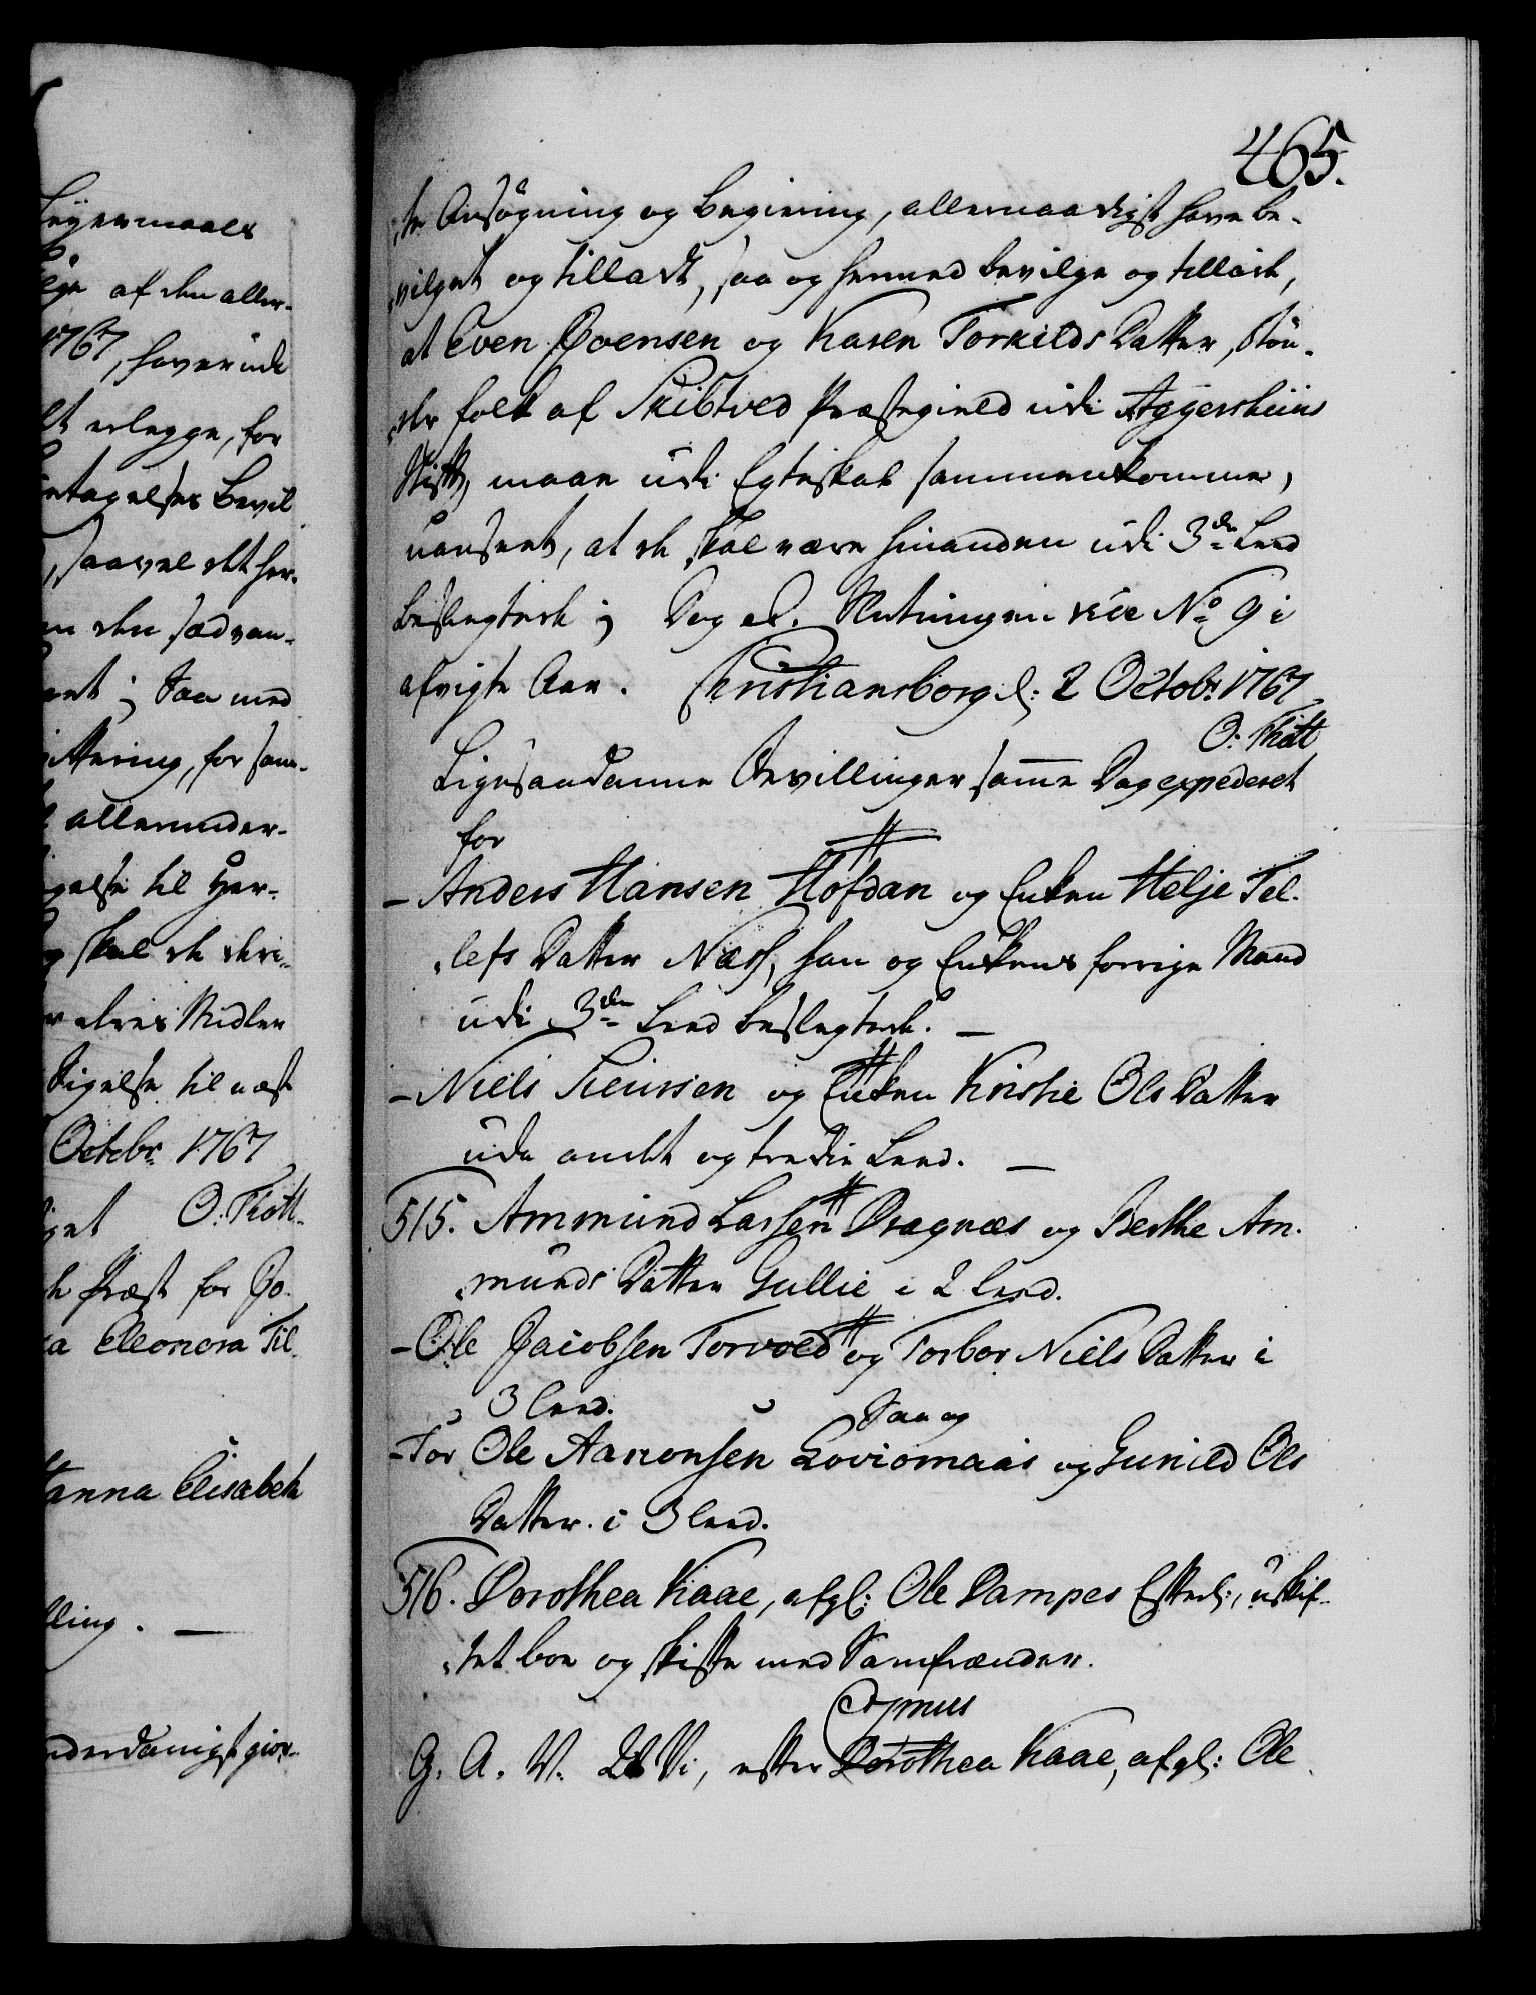 Leyermaals
af den aller-
1767, haver udi
erlegge, for
Bevil
, saavel det her-
den sædvan-
; Saa med
for sam-
allerunder-
gelse til Her-
skal de dri-
deres Midler
Sigelse til næst
Octobr 1767
O: Thott.
Præst for Jo-
Eleonora Til.
Elisabeth
ling. —
nderdanigst gior-
465.
te Ansøgning og Begiering, allernaadigst have be-
vilget og tilladt, saa og hermed bevilge og tillade,
at Even Joensen og Karen Torkilds Datter, bøn-
der folk af Skibtved Præstegield udi Aggershuus
Stift, maae udi Egteskab sammenkomme,
uanseet, at de skal være hinanden udi 3de Leed
beslegtede; Dog et. Slutningen vide No 9 i
afvigte Aar. Christiansborg d: 2 Octobr: 1767
O: Thott
Ligesaadanne Bevillinger samme Dag expederet
for
- Anders Hansen Hofdan og Enken Helje Tel-
lefs Datter Næss, han og Enkens forrige Mand
udi 3de Leed beslegtede. —
- Niels Siursen og Enken Kirstie Ols Datter
udi andet og tredie Leed. —
515. Ammund Larsen Dragnæs og Berthe Am-
munds Datter Gullie i 2 Leed.
- Ole Jacobsen Torvold og Torbor Niels Datter i
3 Leed.
Saa og
- For Ole Aanonsen Loviomaas og Gunild Ols
Datter. i 3 Leed.
516. Dorothea Kaae, afgl: Ole Dampes Efterl:, uskif-
tet boe og skifte med Samfrænder.
Cosmus
G. A. V. At Vi, efter Dorothea Kaae, afgl: Ole